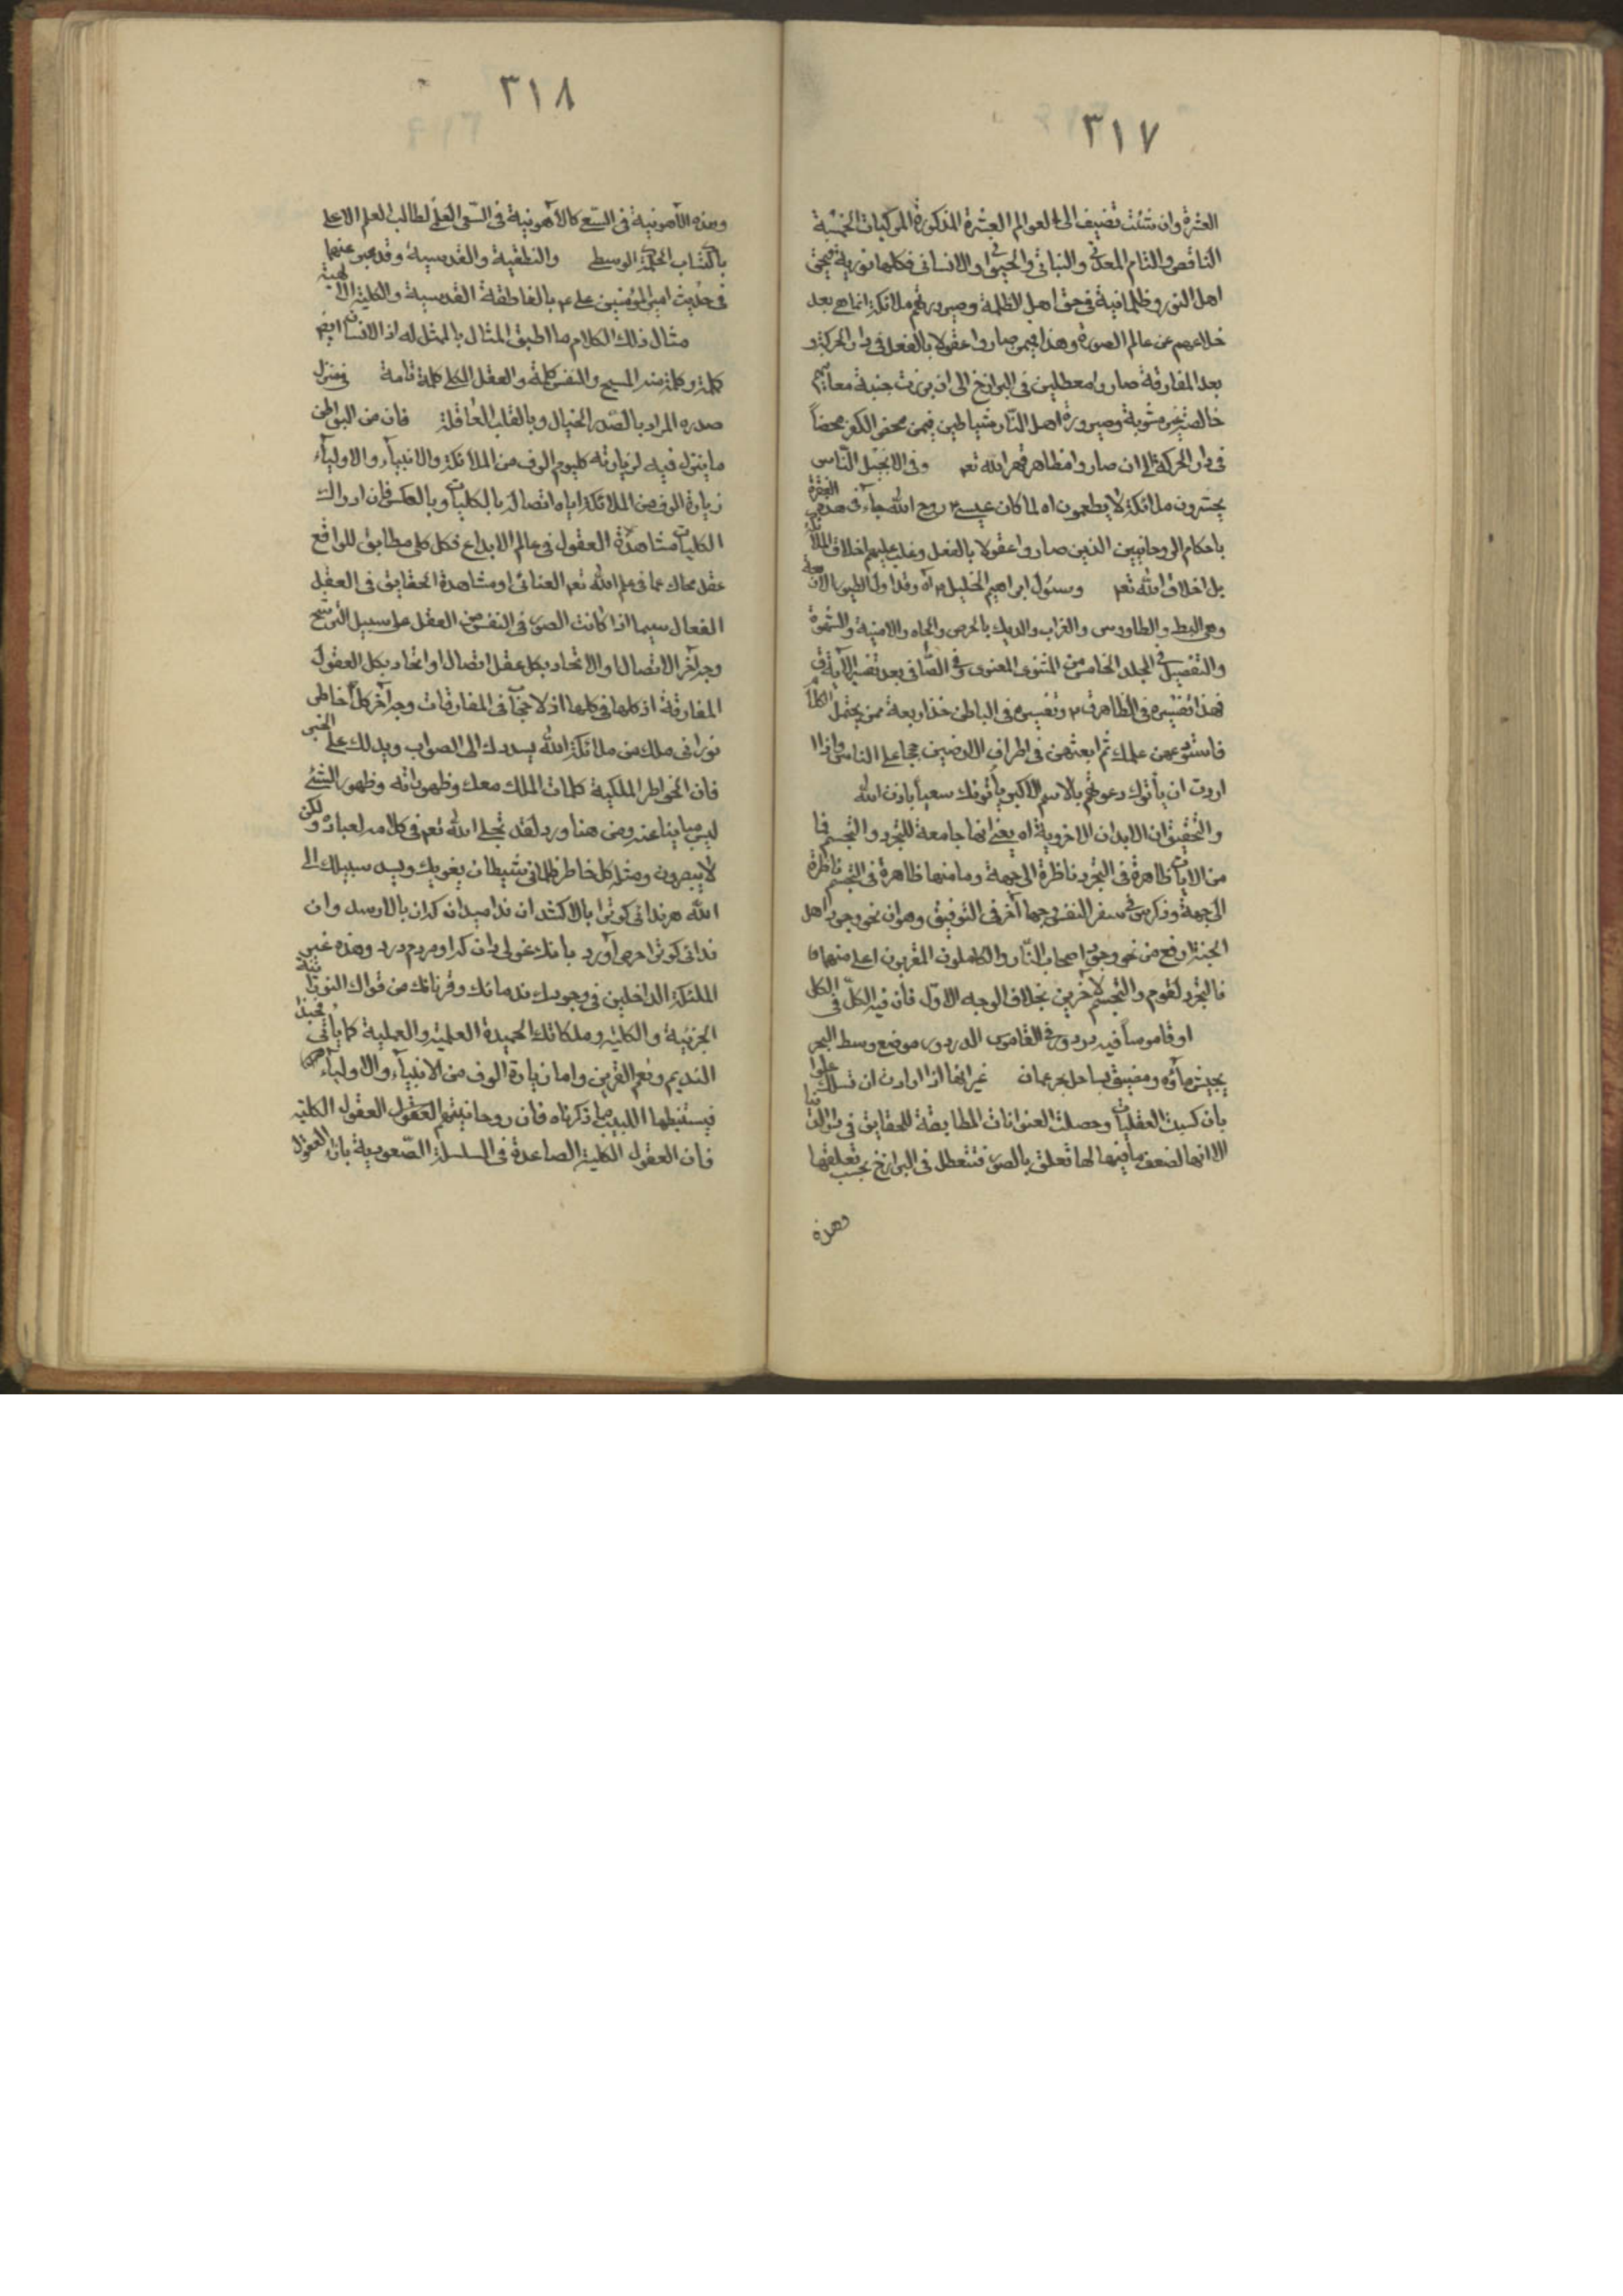 ٣١٧
العشرة وان شئت تضيف الى العوالم العشرة المذكورة المركبات الخمسة
الناقص والتام المعدنى والنباتى والحيوانى والانسانى فكلها نورية فى حق
اهل النور وظلمانية فى حق اهل الظلمة وصيرورتهم ملائكة انما هى بعد
خلاصهم عن عالم الصورة وهذا فيمن صاروا عقولا بالفعل فى دار الحركة و
بعد المفارقة صاروا معطلين فى البرازخ الى ان
خالصة غير مشوبة وصيرورة اهل النار شياطين فيمن محض الكفر محضاً
فى دار الحركة الى ان صاروا مظاهر قهر الله تعم وفى الانجيل الناس
يحشرون ملائكة لا يطعمون اه لما كان عيسى روح الله جاء فى هذه الفقرة
باحكام الروحانيين الذين صاروا عقولا بالفعل وغلب عليهم اخلاق الملائكة
بل اخلاق الله تعم وسئول ابراهيم الخليل اه وقد اول الطيور الاربعة
وهى البط والطاوس والغراب والديك بالحرص والجاه والامنية والشهوة
والتفصيل فى المجلد الخامس من المثنوى المعنوى وفى الصافى بعد تفسير الآية ق
فهذا تفسيره فى الظاهر ق وتفسيره فى الباطن خذ اربعة ممن يحتمل الكلام
فاستودعهن علمك ثم ابعثهن فى اطراف الارضين حججا على الناس واذا
اردت ان يأتوك دعوتهم بالاسم الاكبر يأتونك سعياً باذن الله
والتحقيق ان الابدان الاخروية اه يعنى انها جامعة للتجرد والتجسم فما
من الايات ظاهرة فى التجرد ناظرة الى جهة وما منها ظاهرة فى التجسم ناظرة
الى جهة وذكر س فى سفر النفس وجها آخر فى التوفيق وهو ان نحو وجود اهل
الجنة ارفع من نحو وجود اصحاب النار والكاملون المقربون اعلى منهما
فالتجرد لقوم والتجسم لآخرين بخلاف الوجه الاول فان فيه الكل فى الكل
او قاموساً فيه دردور فى القاموس الدردور موضع وسط البحر
يجيش ماؤه ومضيق بساحل بحر عمان غير انها اذا ارادت ان تسلك علوا
بان كسبت العقليات وحصلت العنوانات المطابقة للحقايق فى
الا انها لضعف مافيها لها تعلق بالصور فتتعطل فى البرازخ بحسب تعلقها
وهذه
٣١٨
وهذه الآهونية فى التسع كالآهونية فى السعى العلمى لطالب العلم الاعلى
باكتساب الحكمة الوسطى والنطقية والقدسية وقد عبر عنهما
فى حديث امير المؤمنين على ع بالناطقة القدسية والكلية الالهية
مثال ذلك الكلام ما اطبق المثال بالممثل له اذ الانسان ايضم
كلمة وكلمة منه المسيح والنفس كلمة والعقل الكلى كلمة تامة فى منزل
صدره المراد بالصدر الخيال وبالقلب العاقلة فان من البواطن
ما ينزل فيه لزيارته كل يوم الوف من الملائكة والانبياء والاولياء
زيارة الوف من الملائكة اياه اتصاله بالكليات وبالعكس فان ادراك
الكليات مشاهدة العقول فى عالم الابداع فكل كلى مطابق للواقع
عقل محاك عما فى علم الله تعم العنائى او مشاهدة الحقايق فى العقل
الفعال سيما اذا كانت الصور فى النفس من العقل على سبيل الترشح
وجه آخر الاتصال او الاتحاد بكل عقل اتصال او اتحاد بكل العقول
المفارقة اذ كلها فى كلها اذ لا حجاب فى المفارقات وجه آخر كل خاطر
نورانى ملك من ملائكة الله يسددك الى الصواب ويدلك على الخير
فان الخواطر الملكية كلمات الملك معك وظهوراته وظهور الشئ
ليس مباينا عنه ومن هنا ورد لقد تجلى الله تعم فى كلامه لعباده ولكن
لا يبصرون ومثله كل خاطر ظلمانى شيطان يغويك ويسد سبيلك الى
الله هر ندائى كو ترا بالا كشد آن ندا ميدان كه آن بالا رسد وان
ندائى كو ترا حرص آورد بانك غولى دان كه او مردم درد وهذه غير
الملئكة الداخلين فى وجودك ندمائك وقرنائك من قواك النورانية
الجزئية والكلية وملكاتك الحميدة العلمية والعملية كما يأتى فحبذا
النديم ونعم القرين واما زيارة الوف من الانبياء والاولياء
فيستنبطها اللبيب مما ذكرناه فان روحانيتهم العقول العقول الكلية
فان العقول الكلية الصاعدة فى السلسلة الصعودية بازاء العقول